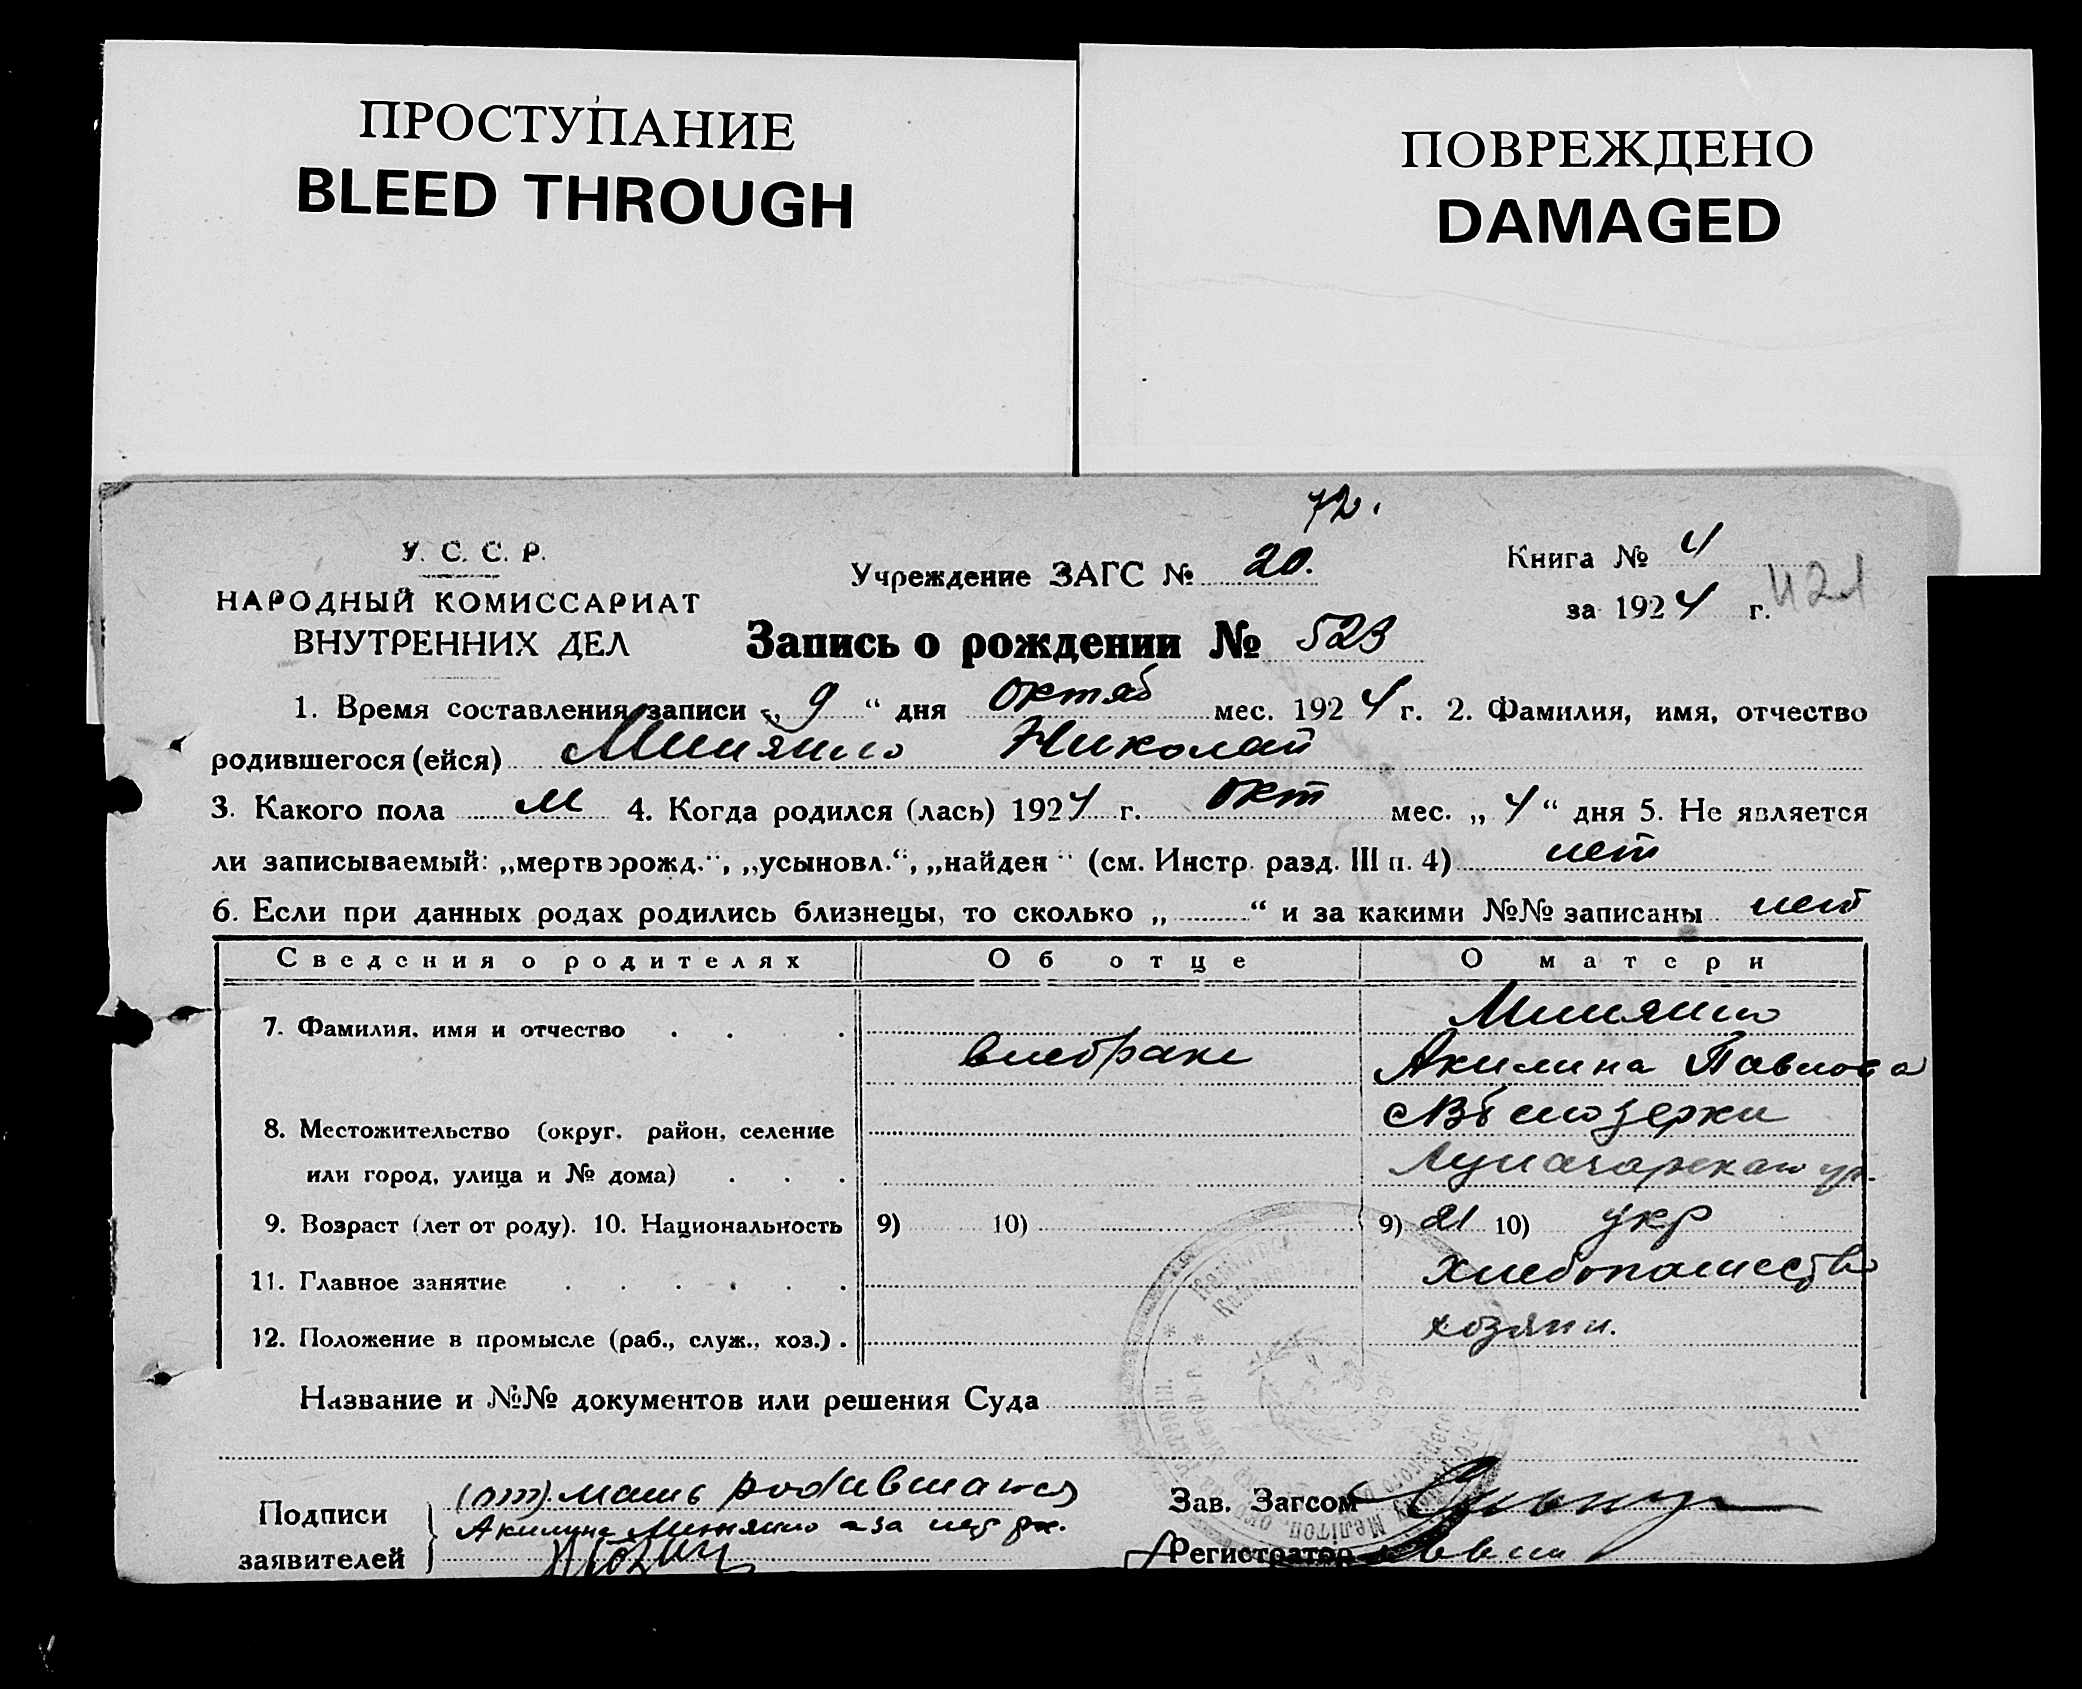 ПРОСТУПАНИЕ
BLEED THROUGH
ПОВРЕЖДЕНО
DAMAGED
72.
У. С. С. Р.
НАРОДНЫЙ КОМИССАРИАТ
ВНУТРЕННИХ ДЕЛ
Учреждение ЗАГС № 20.
Книга № 4
за 1924 г.
421
Запись о рождении № 523
1. Время составления записи „ 9 “ дня октяб мес. 1924 г. 2. Фамилия, имя, отчество
родившегося (ейся) Николай
3. Какого пола М 4. Когда родился (лась) 1924 г. окт мес. „ 4 “ дня 5. Не является
ли записываемый: „мертворожд.“, „усыновл.“, „найден“ (см. Инстр. разд. III п. 4) нет
6. Если при данных родах родились близнецы, то сколько „ “ и за какими №№ записаны нет
Сведения о родителях Об отце О матери
7. Фамилия, имя и отчество . . .
внебраке Акилина Павлова
8. Местожительство (округ, район, селение Белозерки
или город, улица и № дома) . . . Луначарская ул.
9. Возраст (лет от роду). 10. Национальность 9) 10) 9) 21 10) укр
11. Главное занятие . . . . . . хлебопашество
12. Положение в промысле (раб., служ., хоз.) . хозяин.
Название и №№ документов или решения Суда
Подписи
заявителей
мать родившагося
Акилина а за
Зав. Загсом
Регистратор